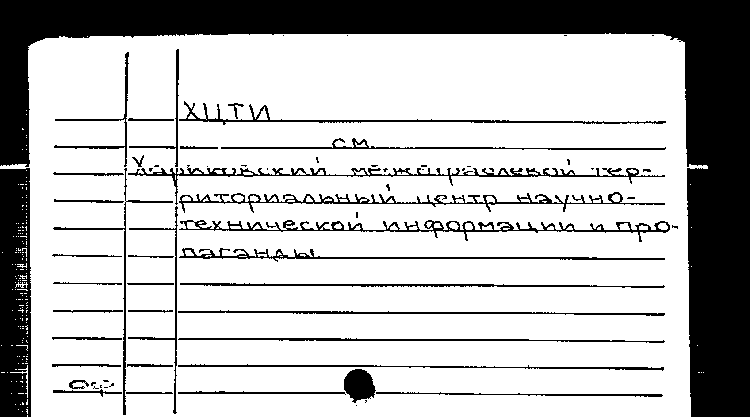 ХЦТИ
см.
Харьковский межотраслевой тер-
риториальный центр научно-
технической информации и про-
паганды.
ОФ